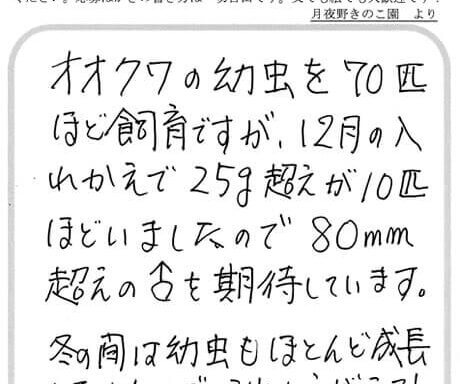 月夜野きのこ園 より
オオクワの幼虫を70匹
ほど飼育ですが、12月の入
れかえで25g超えが10匹
ほどいましたので80mm
超えの♂を期待しています。
冬の間は幼虫もほとんど成長